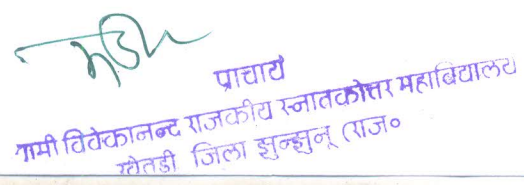 प्राचार्य
गामी विवेकानन्द राजकीय स्नातकोत्तर महाविद्यालय
खेतडी जिला झुन्झुनू (राज०